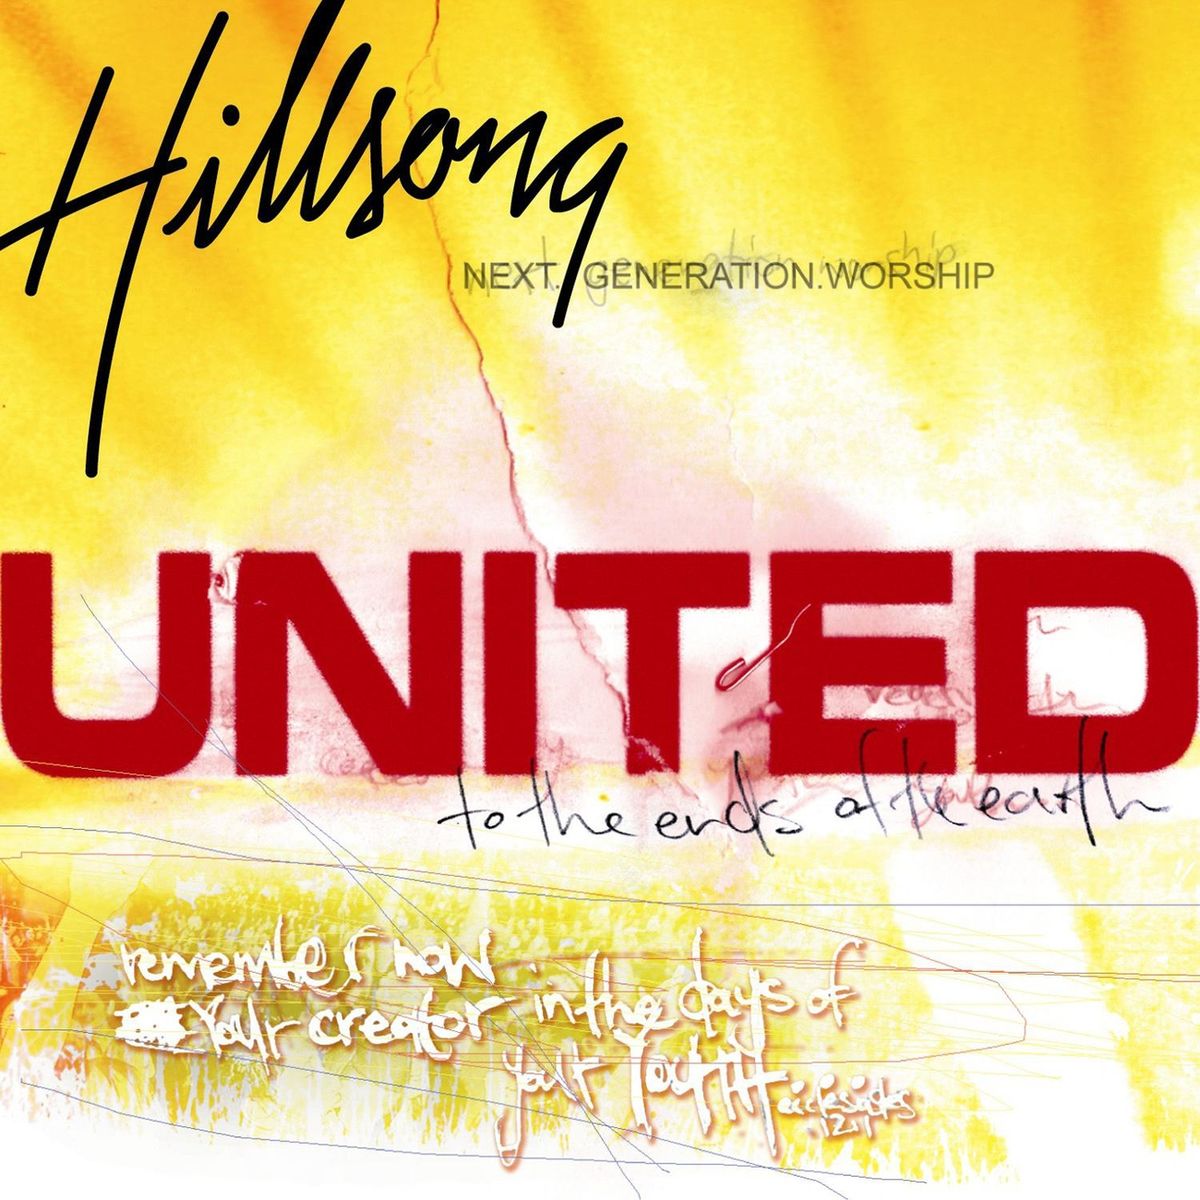 Hillsong
next generation worship
NEXT. GENERATION.WORSHIP
UNITED
to the ends of the earth
remember now
Your creator in the days of
your YOUTH ecclesiastes
12:1